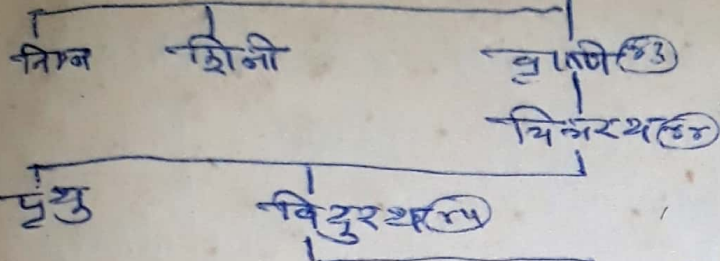 निम्न शिनी वृष्णि ४३
चित्ररथ ४४
पृथु विदुरथ ४५